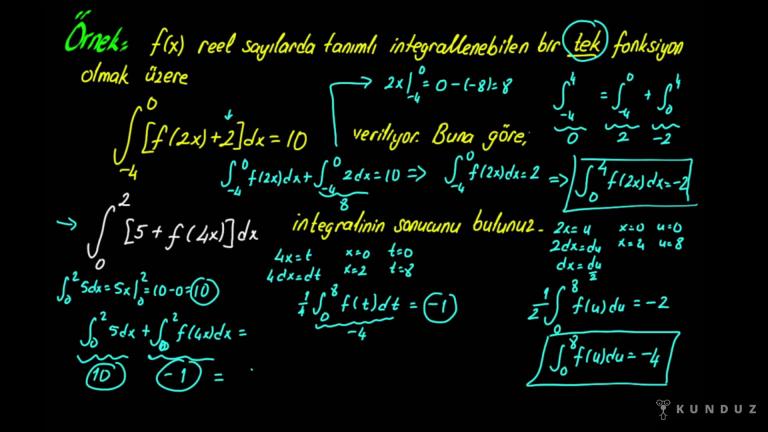 Örnek: f(x) reel sayılarda tanımlı integrallenebilen bir tek fonksiyon
olmak üzere
2x|₋₄⁰ = 0 - (-8) = 8
∫₋₄⁴ = ∫₋₄⁰ + ∫₀⁴
0 2 -2
∫₋₄⁰ [f(2x)+2]dx = 10 veriliyor. Buna göre,
∫₋₄⁰ f(2x)dx + ∫₋₄⁰ 2dx = 10 => ∫₋₄⁰ f(2x)dx = 2 => ∫₀⁴ f(2x)dx = -2
8
→ ∫₀² [5 + f(4x)]dx integralinin sonucunu bulunuz.
4x = t x=0 t=0
4dx = dt x=2 t=8
2x = u x=0 u=0
2dx = du x=4 u=8
dx = du/2
∫₀² 5dx = 5x|₀² = 10 - 0 = 10
1/4 ∫₀⁸ f(t)dt = -1
-4
1/2 ∫₀⁸ f(u)du = -2
∫₀² 5dx + ∫₀² f(4x)dx =
10 -1 =
∫₀⁸ f(u)du = -4
KUNDUZ